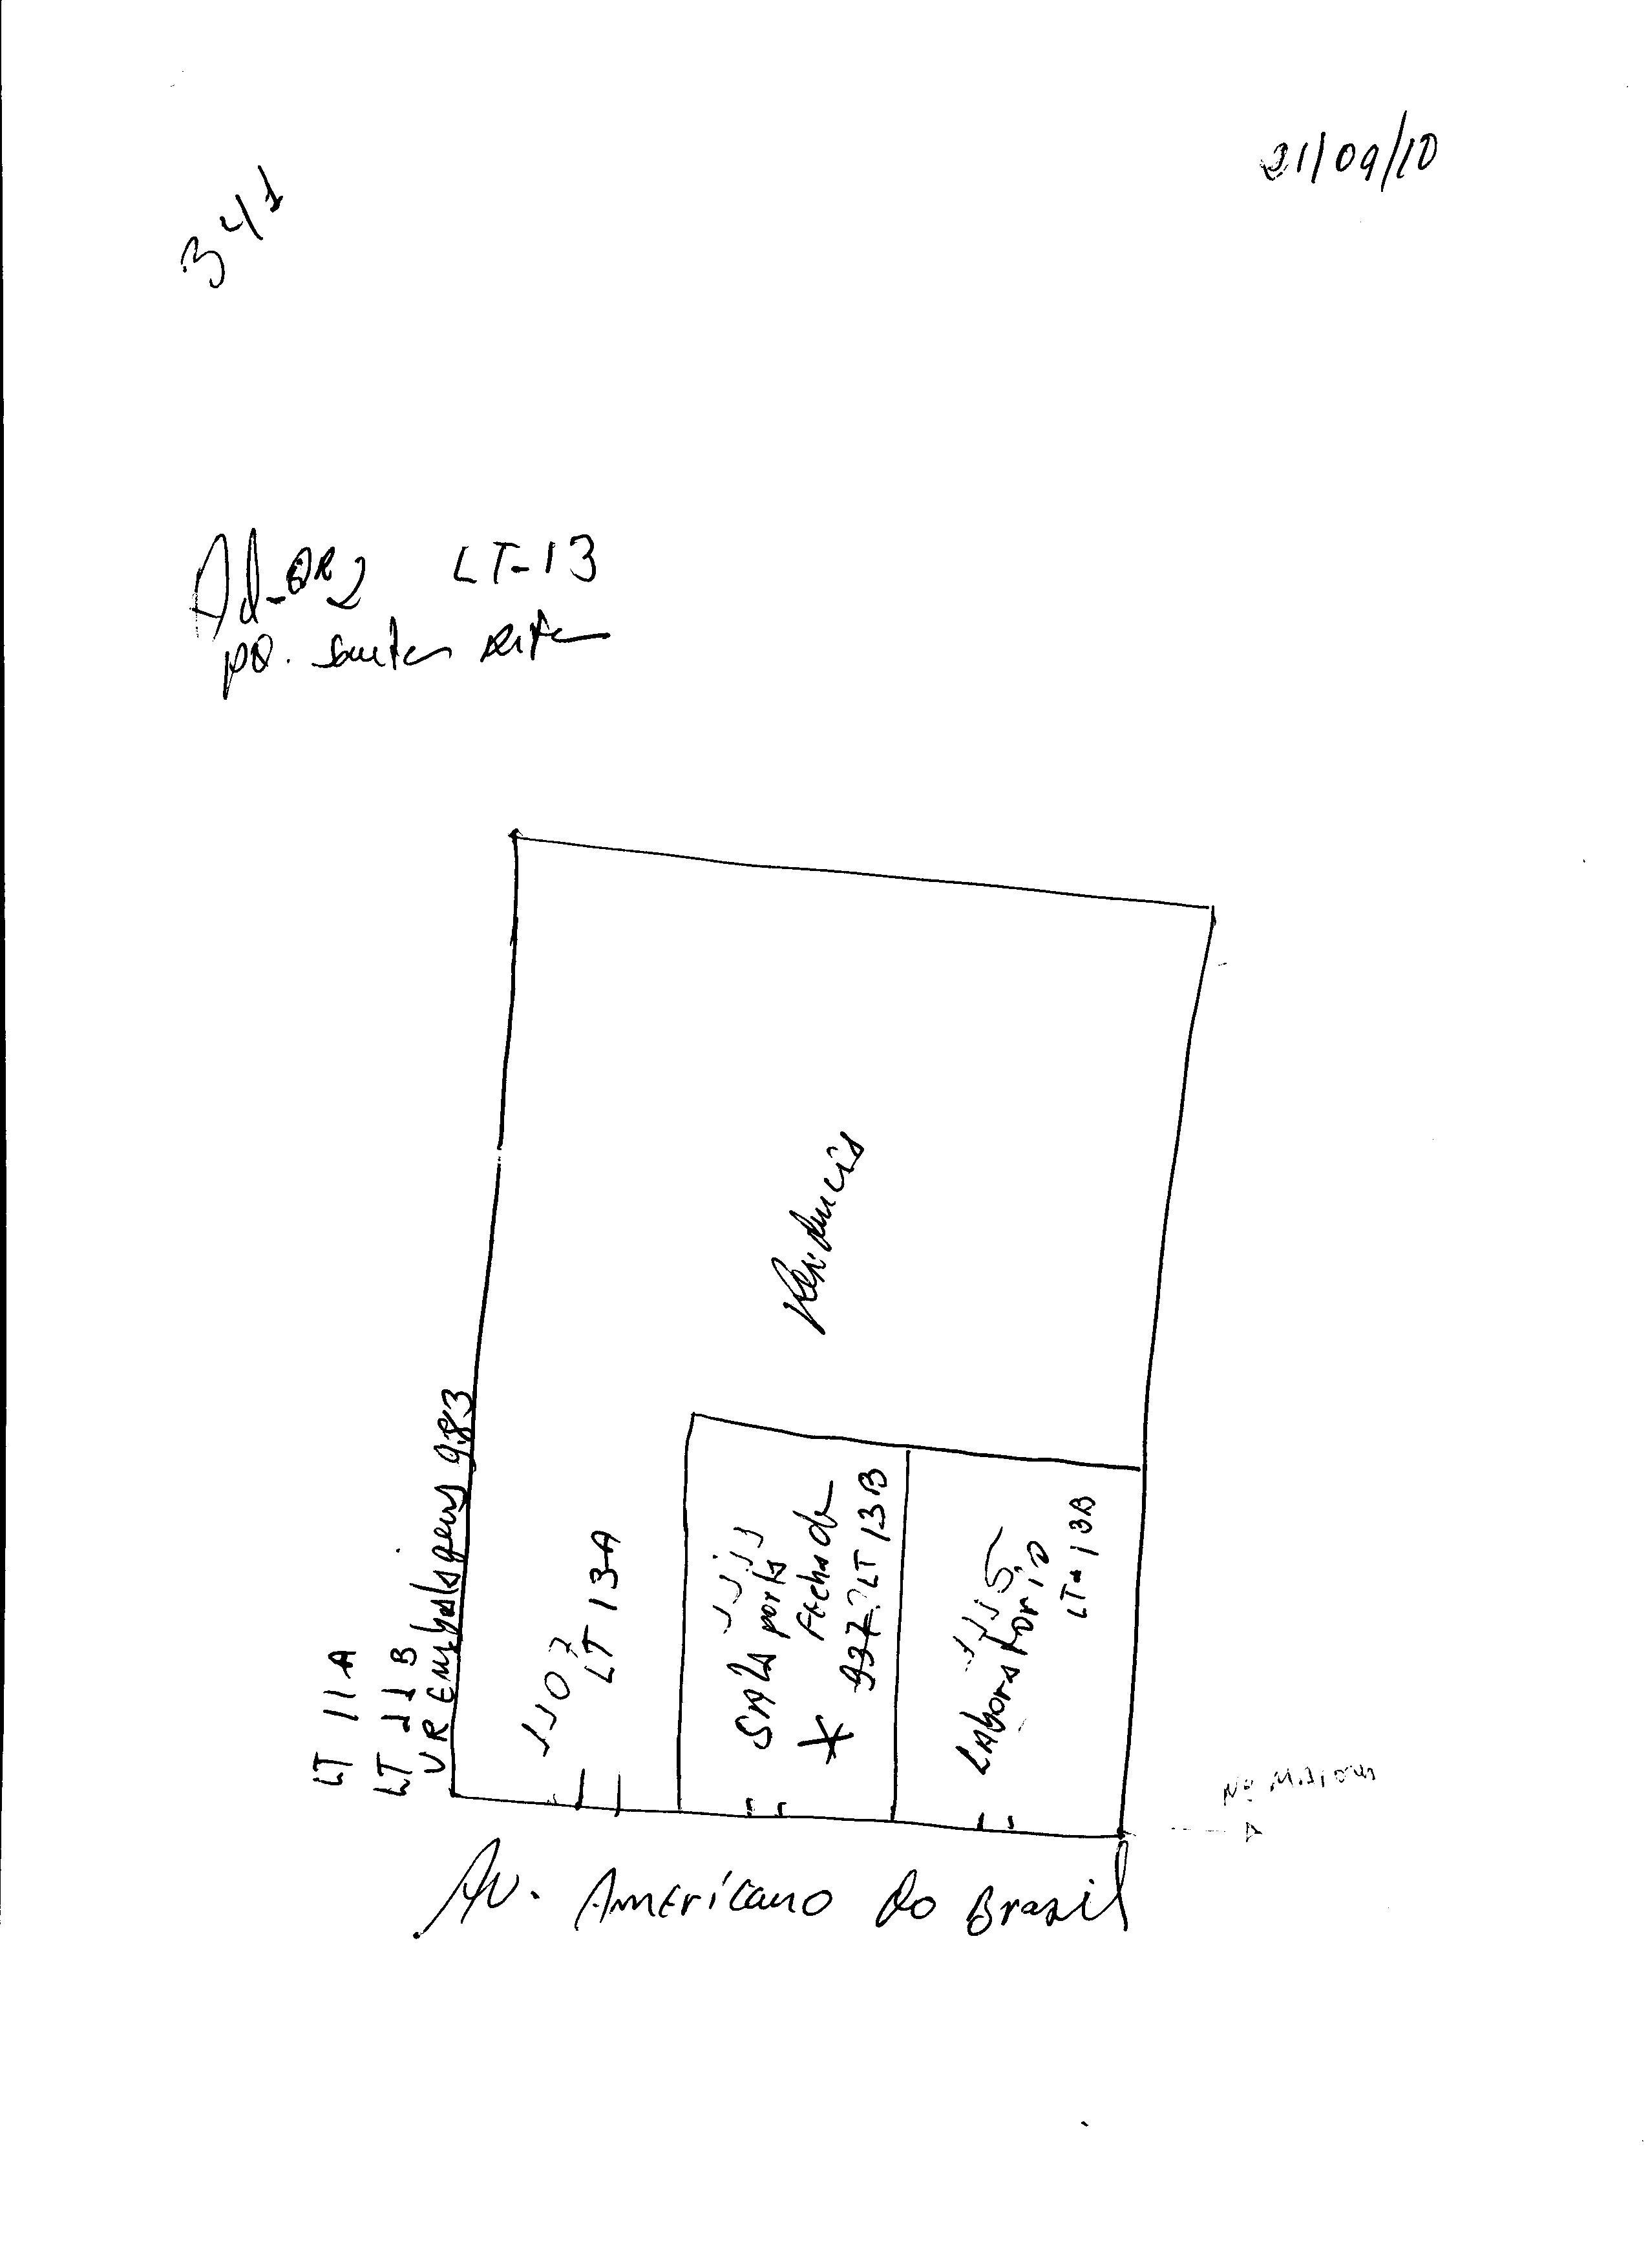 341
21/09/10
Ad-QR2 LT-13
PQ. Santa Rita
Residencia
LT 11A
LT 11B
VR Embalagens 983
1107
LT 13-A
1111
SALA porta
Fechada
937? LT 13B
1115
Laboratorio
LT-13B
Av. Americano do Brazil